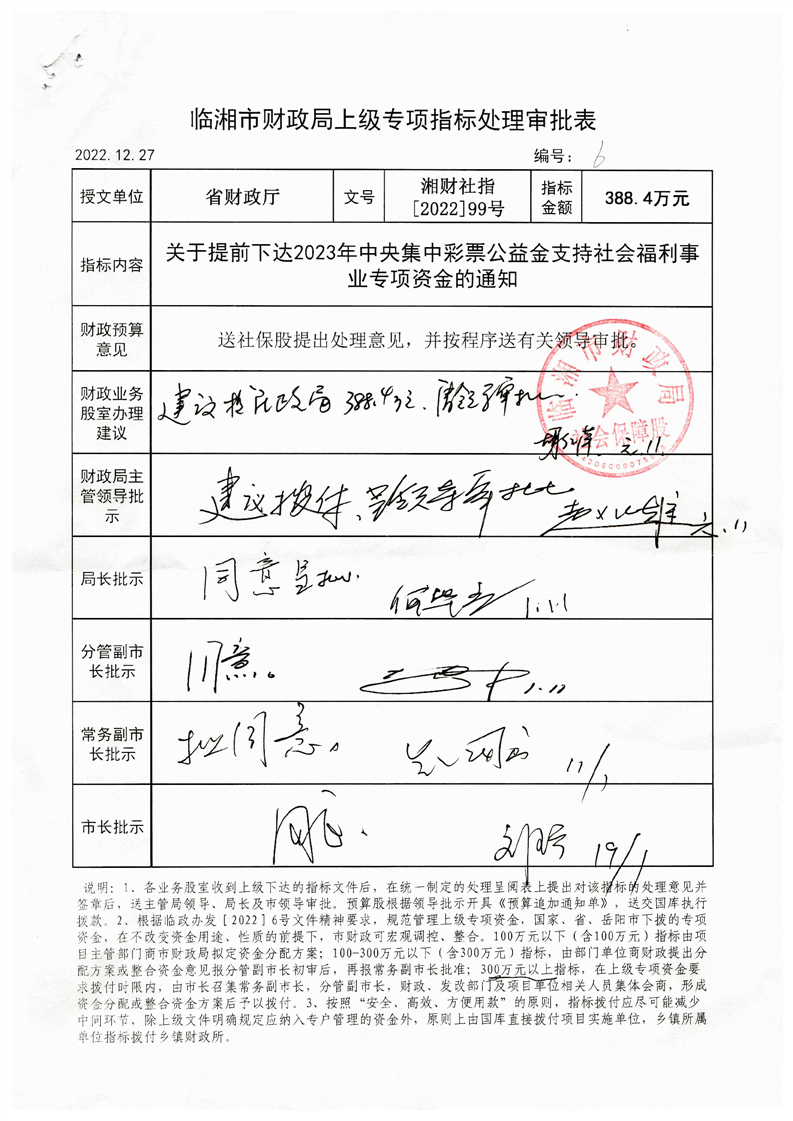 临湘市财政局上级专项指标处理审批表
2022.12.27 编号： 6
授文单位 省财政厅 文号 湘财社指[2022]99号 指标金额 388.4万元
指标内容 关于提前下达2023年中央集中彩票公益金支持社会福利事
业专项资金的通知
财政预算
意见
送社保股提出处理意见，并按程序送有关领导审批。
临湘市财政局
社会保障股
财政业务
股室办理
建议
建议拨民政局388.4万元、
元.11.
财政局主
管领导批
示
建议拨付、呈领导审批
元.11
局长批示 同意呈批.
1.11
分管副市
长批示
同意。
1.11
常务副市
长批示
拟同意。
11/1
市长批示 同意.
19/1
说明：1、各业务股室收到上级下达的指标文件后，在统一制定的处理呈阅表上提出对该指标的处理意见并
签章后，送主管局领导、局长及市领导审批。预算股根据领导批示开具《预算追加通知单》，送交国库执行
拨款。2、根据临政办发[2022]6号文件精神要求，规范管理上级专项资金，国家、省、岳阳市下拨的专项
资金，在不改变资金用途、性质的前提下，市财政可宏观调控、整合。100万元以下（含100万元）指标由项
目主管部门商市财政局拟定资金分配方案；100-300万元以下（含300万元）指标，由部门单位商财政提出分
配方案或整合资金意见报分管副市长初审后，再报常务副市长批准；300万元以上指标，在上级专项资金要
求拨付时限内，由市长召集常务副市长，分管副市长，财政、发改部门及项目单位相关人员集体会商，形成
资金分配或整合资金方案后予以拨付。3、按照“安全、高效、方便用款”的原则，指标拨付应尽可能减少
中间环节，除上级文件明确规定应纳入专户管理的资金外，原则上由国库直接拨付项目实施单位，乡镇所属
单位指标拨付乡镇财政所。